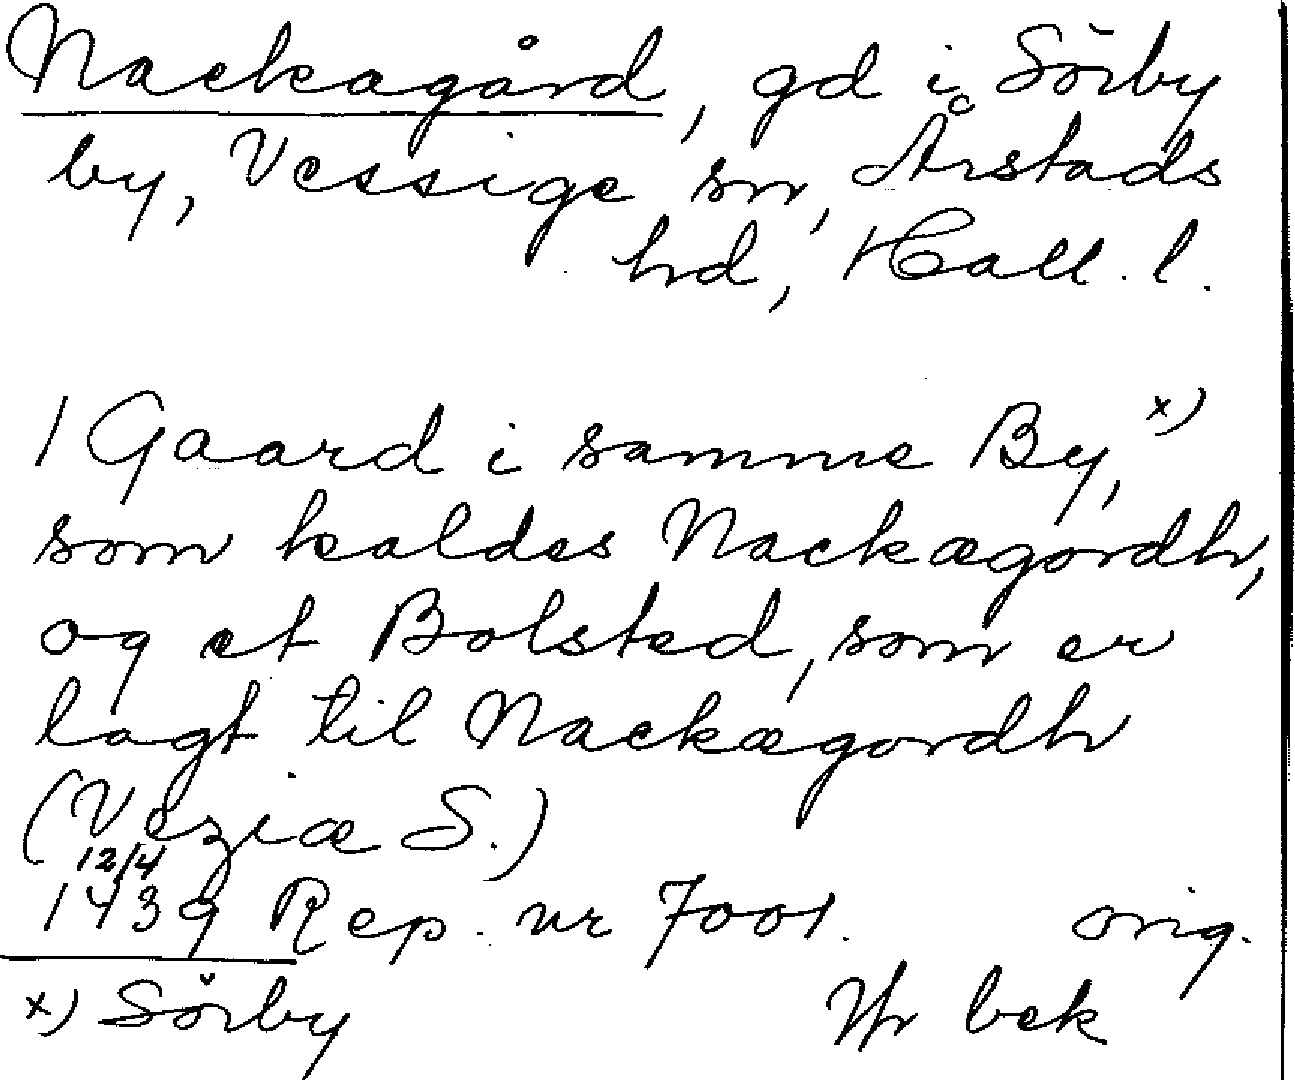 Nackagård, gd i Sörby
by, Vessige sn, Årstads
hd, Hall. l.
1 Gaard i samme By, x)
som kaldes Nackægordh,
og et Bolsted, som er
lagt til Nackægordh
(Veziæ S.)
12/4
1439 Rep. nr 7001. orig.
x) Sörby bek